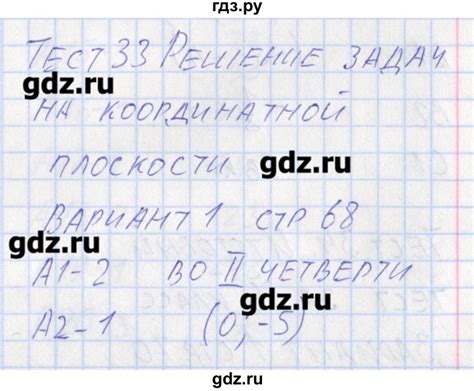 гдз.ру
ТЕСТ 33 РЕШЕНИЕ ЗАДАЧ
gdz.ru gdz.ru
НА КООРДИНАТНОЙ
ПЛОСКОСТИ gdz.ru
ВАРИАНТ 1 СТР 68
gdz.ru
А1-2 ВО II ЧЕТВЕРТИ
А2-1 (0; -5)
gdz.ru